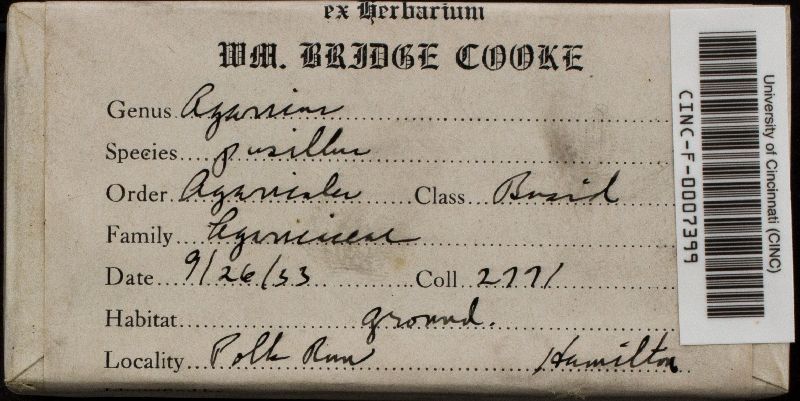 ex Herbarium
WM. BRIDGE COOKE
Genus Agaricus
Species pusillus
Order Agaricales Class Basid
Family Agaricaceae
Date 9/26/53 Coll 2771
Habitat ground.
Locality Polk Run Hamilton
University of Cincinnati (CINC)
CINC-F-0007399